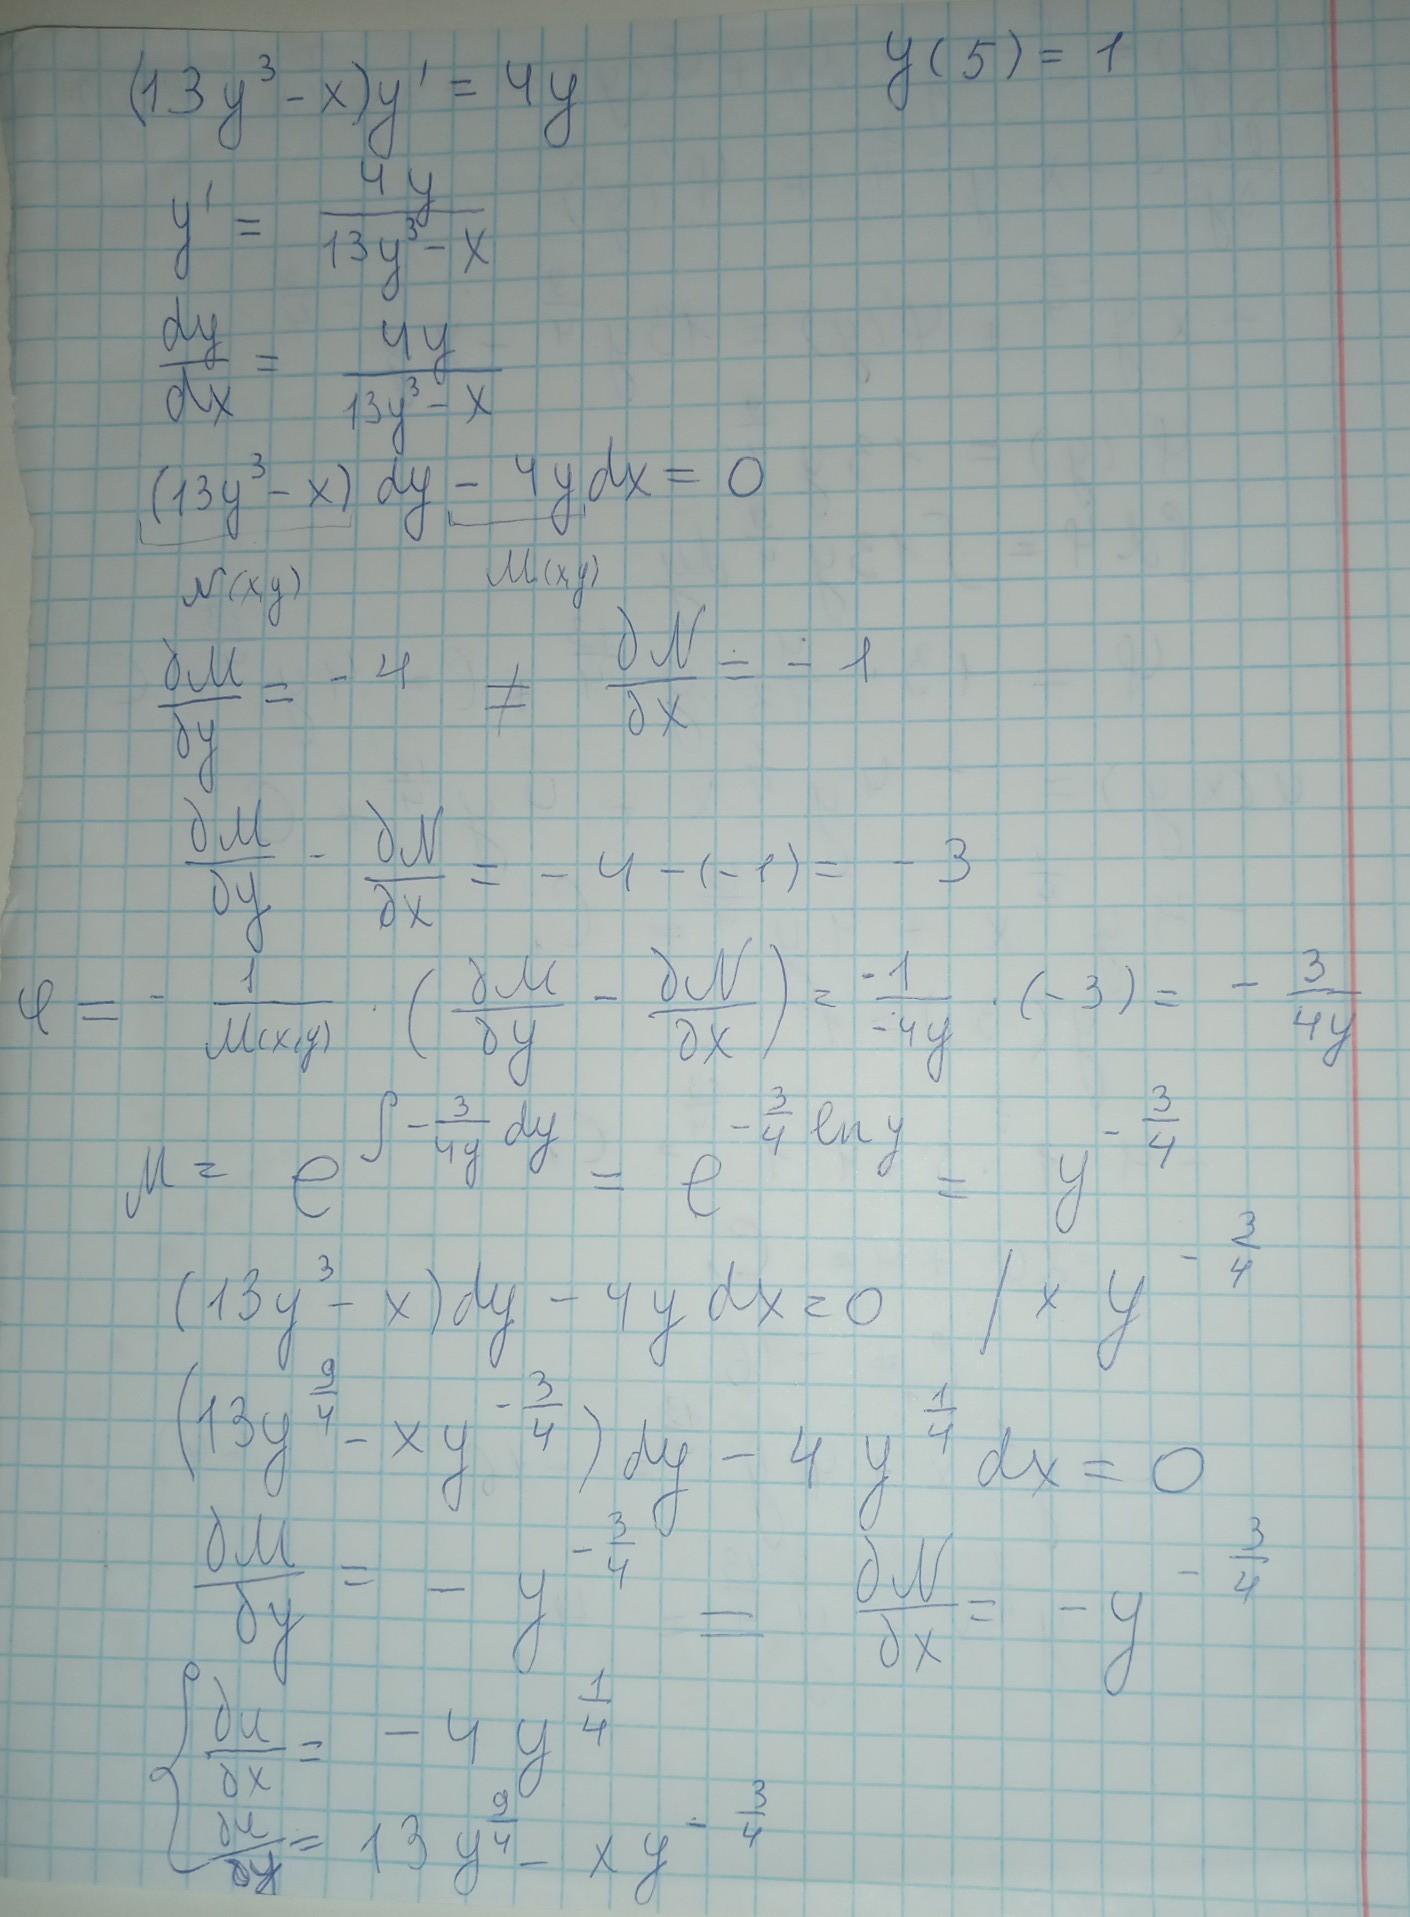 (13y³ - x)y' = 4y y(5) = 1
y' = 4y / (13y³ - x)
dy/dx = 4y / (13y³ - x)
(13y³ - x) dy - 4y dx = 0
N(x,y) M(x,y)
∂M/∂y = -4 ≠ ∂N/∂x = -1
∂M/∂y - ∂N/∂x = -4 - (-1) = -3
φ = - 1/M(x,y) · (∂M/∂y - ∂N/∂x) = -1/-4y · (-3) = - 3/4y
M = e^(∫ -3/4y dy) = e^(-3/4 ln y) = y^(-3/4)
(13y³ - x)dy - 4y dx = 0 / × y^(-3/4)
(13y^(9/4) - xy^(-3/4)) dy - 4 y^(1/4) dx = 0
∂M/∂y = - y^(-3/4) = ∂N/∂x = - y^(-3/4)
{ ∂u/∂x = - 4 y^(1/4)
∂u/∂y = 13 y^(9/4) - x y^(-3/4)